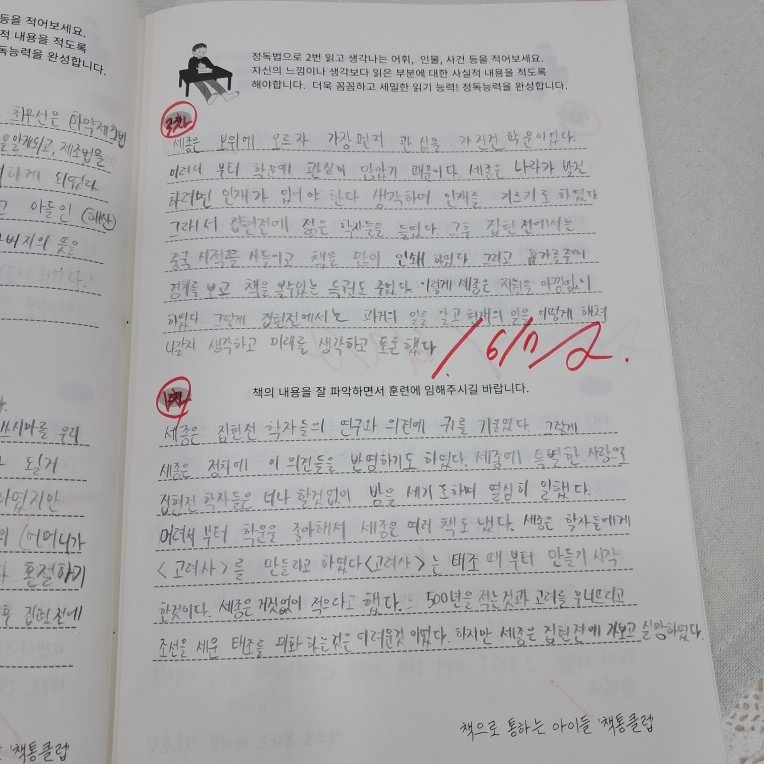 등을 적어보세요.
적 내용을 적도록
독능력을 완성합니다.
최무선은 화약제조법
을알게되고, 제조법을
하게 되었다
고 아들인 (해산)
버지의 뜻을
쓰시마를 우리
하였지만
의 (어머니가
혼절하기
후 집현전에
'책통클럽'
정독법으로 2번 읽고 생각나는 어휘, 인물, 사건 등을 적어보세요.
자신의 느낌이나 생각보다 읽은 부분에 대한 사실적 내용을 적도록
해야합니다. 더욱 꼼꼼하고 세밀한 읽기 능력! 정독능력을 완성합니다.
세종은 보위에 오르자 가장먼저 관심을 가진건 학문이었다.
어려서 부터 학문에 관심이 많았기 때문이다. 세종은 나라가 발전
하려면 인재가 있어야 한다 생각하여 인재를 키우기로 하였다
그래서 집현전에 젊은 학자들을 들였다. 그후 집현전에서는
중국 서적을 사들이고 책을 많이 인쇄 하였다 그리고 휴가를주어
경치를 보고 책을 볼수있는 특권도 주었다. 이렇게 세종은 지원을 아낌없이
하였다 그렇게 집현전에서는 과거의 일을 알고 미래의 일을 어떻게 해쳐
나갈지 생각하고 미래를 생각하고 토론했다.
6/17
책의 내용을 잘 파악하면서 훈련에 임해주시길 바랍니다.
세종은 집현전 학자들의 연구와 의견에 귀를 기울였다. 그렇게
세종은 정치에 이 의견들을 반영하기도 하였다. 세종에 특별한 사랑으로
집현전 학자들은 너나 할것없이 밤을 세기도하며 열심히 일했다.
어려서 부터 학문을 좋아해서 세종은 여러 책도 냈다. 세종은 학자들에게
<고려사>를 만들라고 하였다 <고려사>는 태조 때 부터 만들기 시작
한것이다. 세종은 거짓없이 적으라고 했다. 500년을 적는것과 고려를 무너뜨리고
조선을 세운 태조를 미화 하는것은 어려운것 이었다. 하지만 세종은 집현전에 가보고 실망하였다.
책으로 통하는 아이들 '책통클럽'